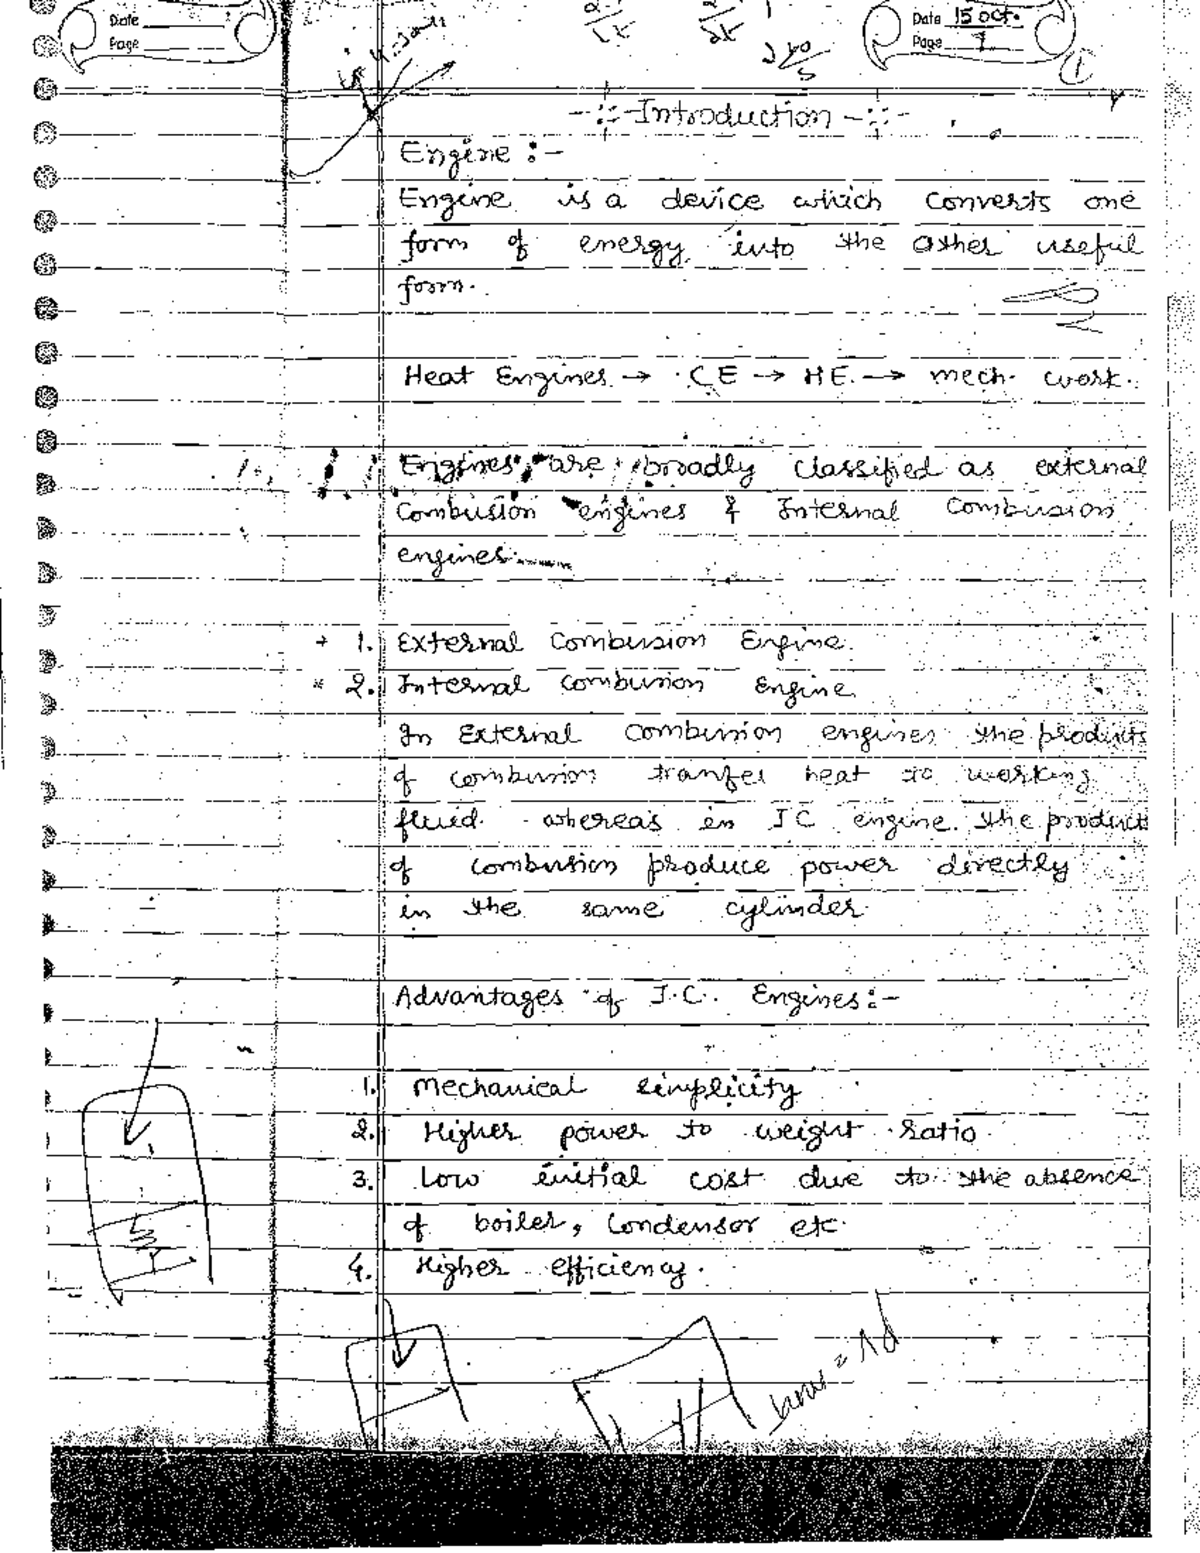 Date
Page
Date 15 Oct.
Page 1
1
-:- Introduction -:-
Engine :-
Engine is a device which converts one
form of energy into the other useful
form.
Heat Engines → CE → HE → mech. work.
Engines are broadly classified as external
Combustion engines & Internal Combustion
engines.
1. External Combustion Engine.
2. Internal Combustion Engine.
In External Combustion engines the products
of combustion tranfer heat to working
fluid whereas in IC engine the product
of combustion produce power directly
in the same cylinder.
Advantages of I.C. Engines :-
1. Mechanical simplicity
2. Higher power to weight ratio.
3. Low initial cost due to the absence
of boiler, Condensor etc.
4. Higher efficiency.